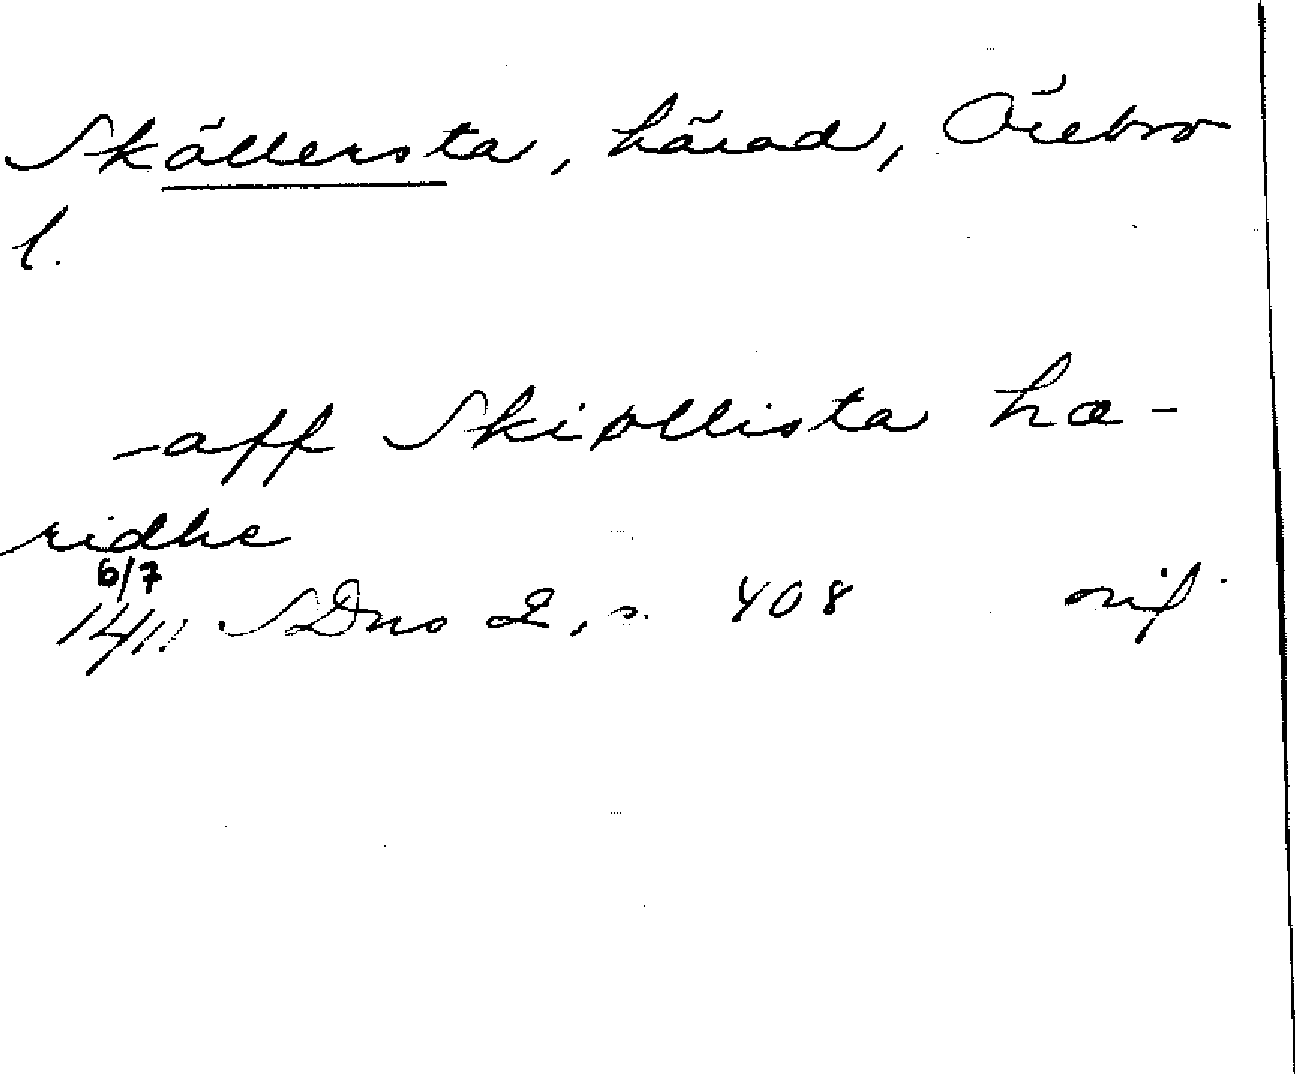 Sköllersta, härad, Örebro
l.
- aff Skiøllista hæ-
ridhe
6/7
14/11 SDns 2, s. 408 orig.